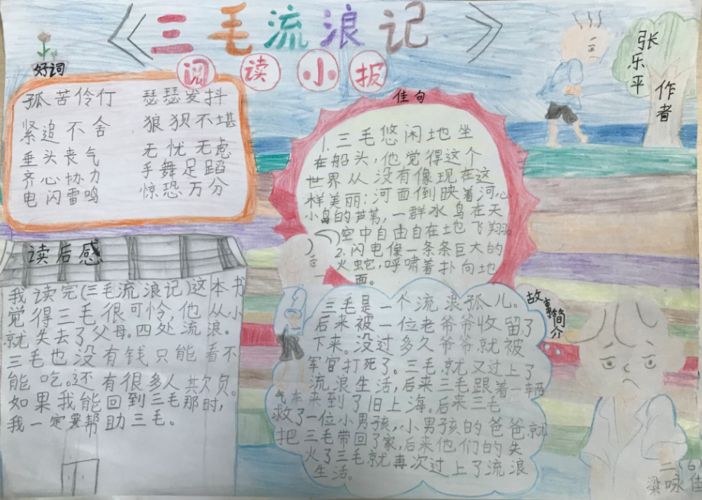 《三毛流浪记》
阅读小报
张乐平
作者
好词
孤苦伶仃 瑟瑟发抖
紧追不舍 狼狈不堪
垂头丧气 无忧无虑
齐心协力 手舞足蹈
电闪雷鸣 惊恐万分
佳句
1.三毛悠闲地坐
在船头,他觉得这个
世界从没有像现在这
样美丽:河面倒映着河心
小岛的芦苇,一群水鸟在天
空中自由自在地飞翔。
2.闪电像一条条巨大的
火蛇,呼啸着扑向地
面。
读后感
我读完《三毛流浪记》这本书
觉得三毛很可怜,他从小
就失去了父母。四处流浪。
三毛也没有钱只能看不
能吃。还有很多人欺负。
如果我能回到三毛那时,
我一定要帮助三毛。
故事简介
三毛是一个流浪孤儿。
后来被一位老爷爷收留了
下来。没过多久爷爷就被
军官打死了。三毛就又过上了
流浪生活,后来三毛跟着一辆
气车来到了旧上海。后来三毛
救了一位小男孩,小男孩的爸爸就
把三毛带回了家,后来他们的失
火了三毛就再次过上了流浪
生活。
二(6)
梁咏佳